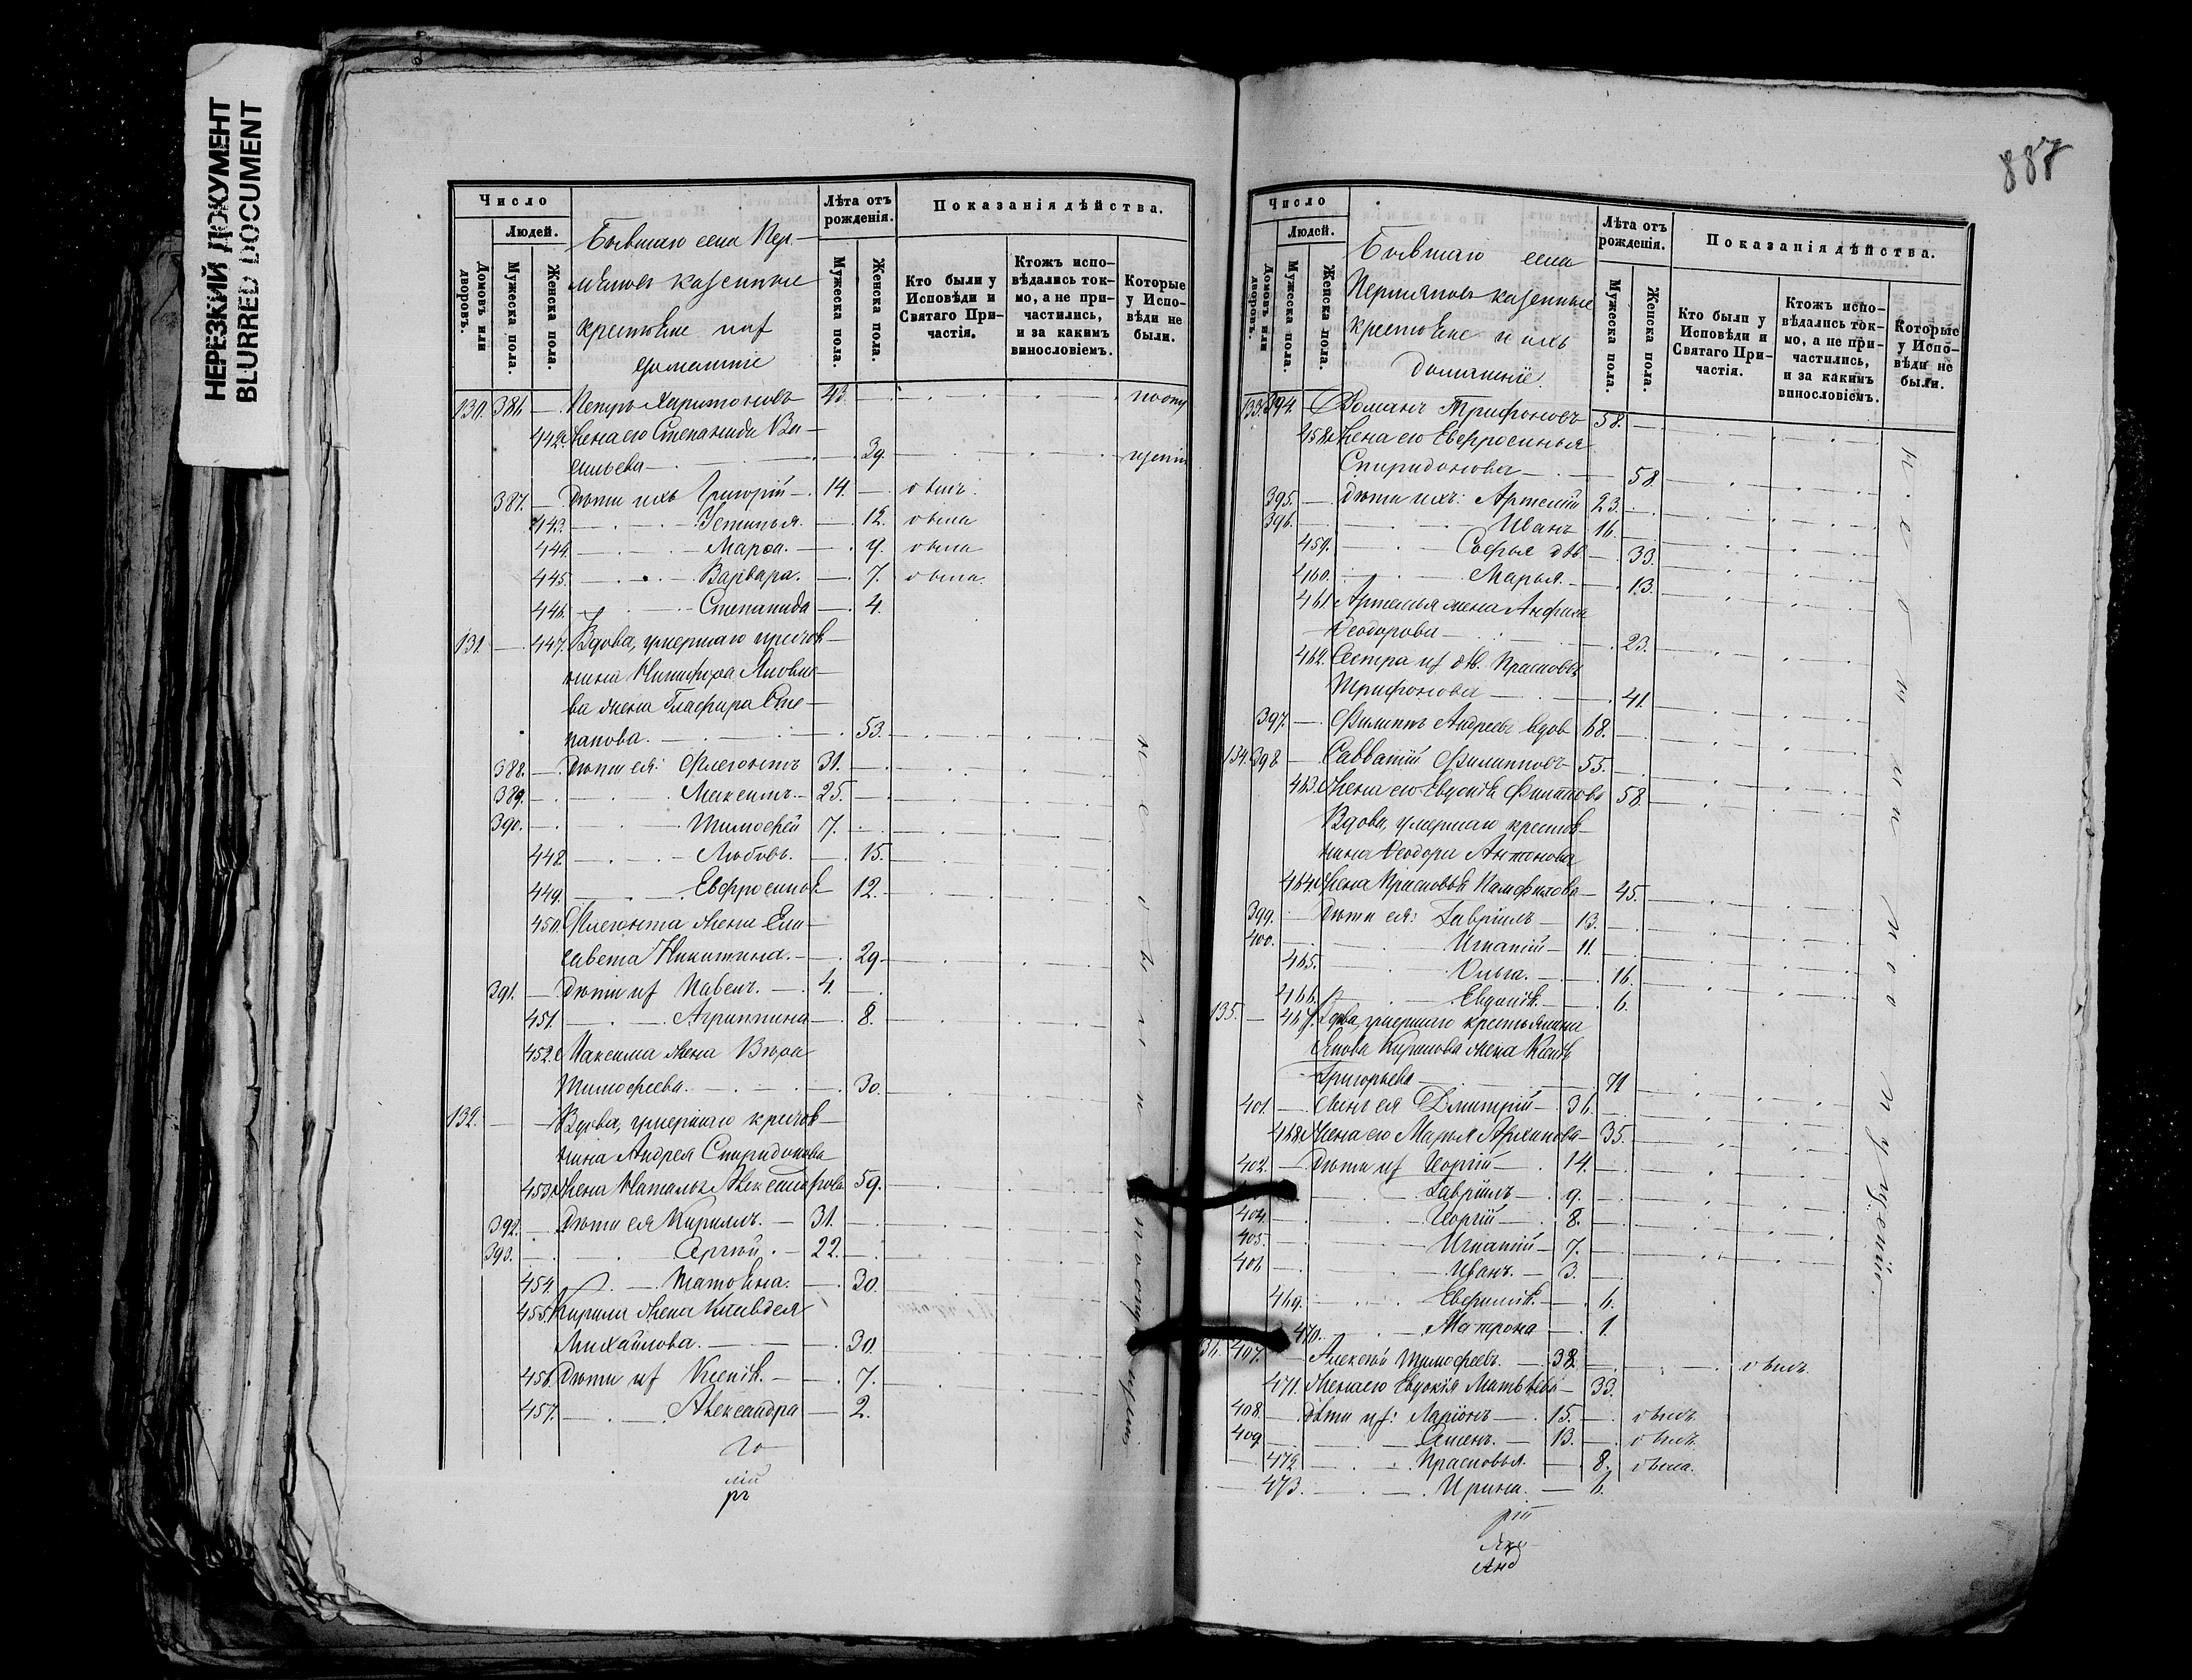 НЕРЕЗКИЙ ДОКУМЕНТ
BLURRED DOCUMENT
Число
Людей.
Домовъ или дворовъ.
Мужеска пола.
Женска пола.
Бывшаго села Пер-
мяковъ казенные
крестьяне и их
домашние
Лѣта отъ рожденія.
Мужеска пола.
Женска пола.
Показанія дѣйства.
Кто были у Исповѣди и Святаго Причастія.
Ктожъ исповѣдались токмо, а не причастились, и за какимъ винословіемъ.
Которые у Исповѣди не были.
130. 386. Петръ Харитоновъ 43. по опу
442. Жена его Степанида Ва-
сильева 39. щенію
387. Дѣти ихъ Григорій 14. былъ
443. Устинья 12. была
444. Марѳа. 9. была
445. Варвара. 7. была
446. Степанида 4.
131. 447. Вдова, умершаго крестья-
нина Никифора Яковле-
ва жена Глафира Сте-
панова. 53.
388. Дѣти ея: Флегонтъ 31.
389. Максимъ 25.
390. Тимофей 7.
448. Любовь. 15.
449. Евфросинья 12.
450. Флегонта жена Ели-
савета Никитина. 29
391. Дѣти их Павелъ. 4.
451. Агриппина 8.
452. Максима жена Вѣра
Тимофеева. 30.
132. Вдова, умершаго крестья-
нина Андрея Спиридонова
453. Жена Наталья Александрова 59.
392. Дѣти ея Кириллъ. 31.
393. Сергій 22.
454. Татьяна. 30.
455. Кирила жена Клавдея
Михайлова. 30.
456. Дѣти их Ксенія. 7.
457. Александра 2.
не были по опущенію
887
Число
Людей.
Домовъ или дворовъ.
Мужеска пола.
Женска пола.
Бывшаго села
Пермяковъ казенные
крестьяне и ихъ
домашніе.
Лѣта отъ рожденія.
Мужеска пола.
Женска пола.
Показанія дѣйства.
Кто были у Исповѣди и Святаго Причастія.
Ктожъ исповѣдались токмо, а не причастились, и за какимъ винословіемъ.
Которые у Исповѣди не были.
133. 394. Романъ Трифоновъ 58.
458. Жена его Евфросинья
Спиридонова 58.
395. Дѣти ихъ: Артемій 23.
396. Иванъ 16.
459. Софья дѣв. 33.
460. Марья. 13.
461. Артемья жена Анфиса
Ѳеодорова 23.
462. Сестра их дѣв. Прасковья
Трифонова 41.
397. Филиппъ Андреевъ вдов 68.
134. 398 Савватій Филипповъ 55.
463. Жена его Евдокія Филиппова 58
Вдова, умершаго крестья-
нина Ѳеодора Антонова
464. Жена Прасковья Памфилова 45.
399. Дѣти ея: Гавріилъ 13.
400. Игнатій 11.
465. Ольга. 16.
466. Евдокія. 6.
135. 467. Вдова, умершаго крестьянина
Якова Кирилова жена Ксенія
Григорьева 71
401. Сынъ ея Дмитрій 36.
468. Жена его Марья Архипова 35.
402. Дѣти их Георгій 14.
Гавріилъ 9.
404. Георгій 8.
405. Игнатій 7.
406. Иванъ. 3.
469. Евфимія. 6.
470. Матрона 1.
136. 407. Алексѣй Тимофеевъ. 38. былъ
471. Жена его Евдокія Матвѣева 33.
408. Дѣти их: Ларіонъ 15. былъ
409 Семенъ. 13. былъ
472. Прасковья. 8. была.
473. Ирина. 6.
не были по опущенію